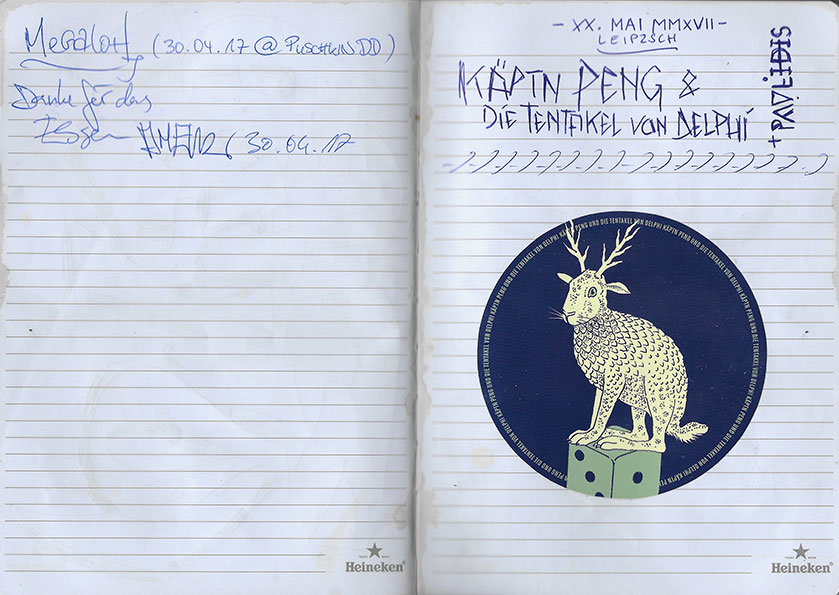 MEGALOH (30.04.17 @ PUSCHKIN DD)
Danke für das
Essen (30.04.17
- XX. MAI MMXVII -
LEIPZSCH
KÄPTN PENG &
DIE TENTAKEL VON DELPHI
+ PAVLIDIS
KÄPTN PENG UND DIE TENTAKEL VON DELPHI KÄPTN PENG UND DIE TENTAKEL VON DELPHI KÄPTN PENG UND DIE TENTAKEL VON DELPHI KÄPTN PENG UND DIE TENTAKEL VON DELPHI
TRADE MARK
Heineken®
TRADE MARK
Heineken®